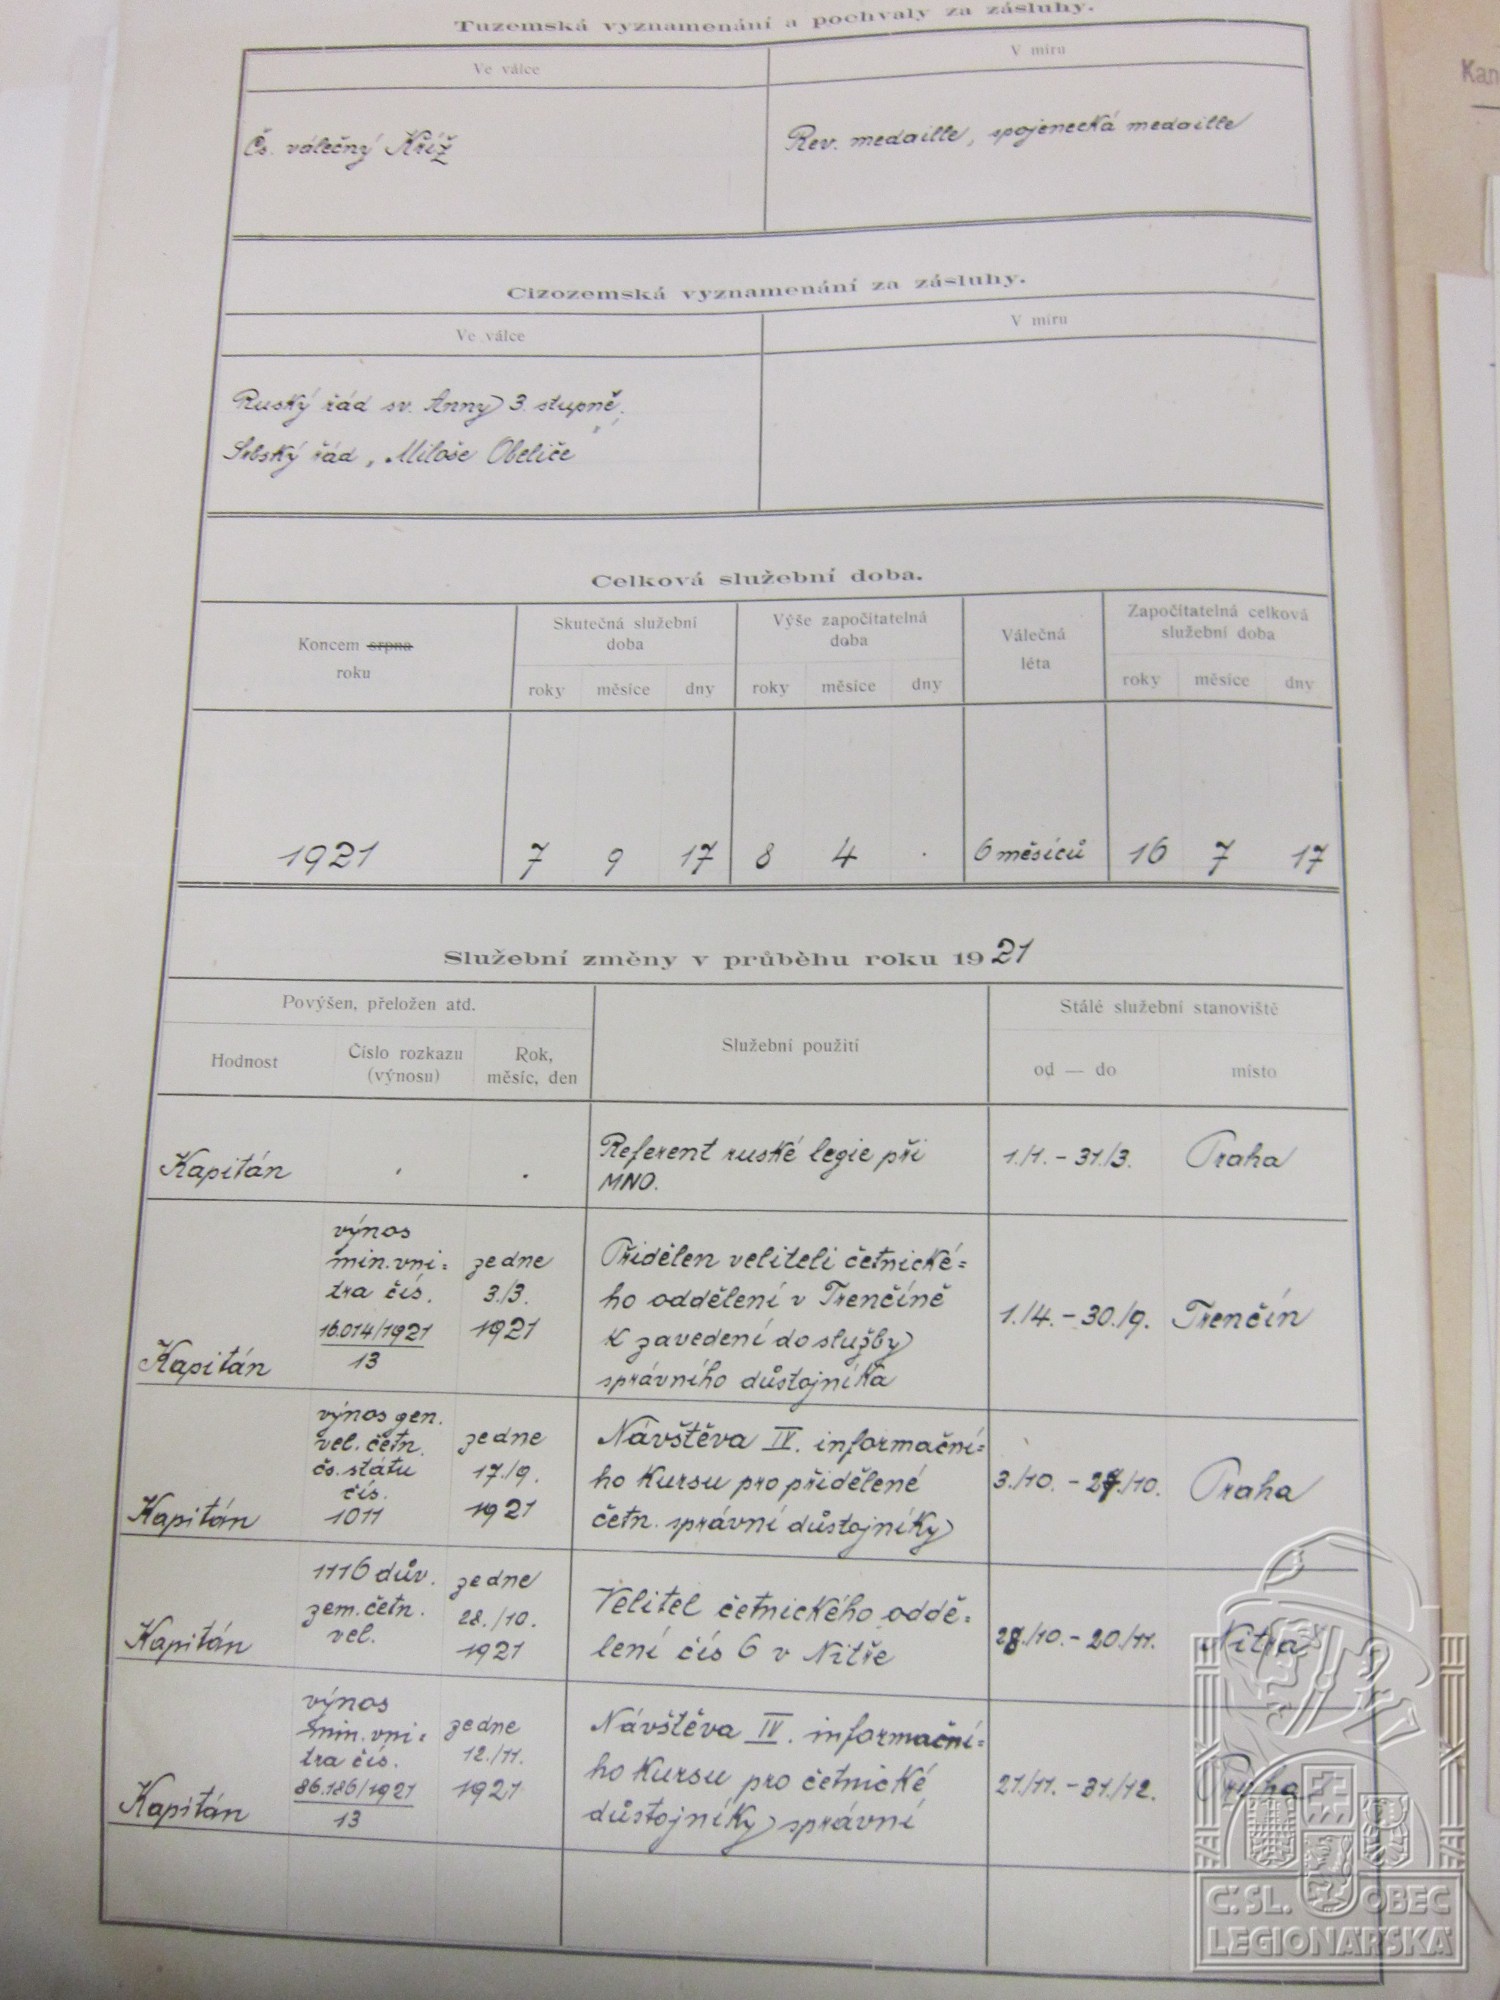 Tuzemská vyznamenání a pochvaly za zásluhy.
Ve válce
V míru
Čs. válečný Kříž
Rev. medaille, spojenecká medaille
Cizozemská vyznamenání za zásluhy.
Ve válce
V míru
Ruský řád sv. Anny 3. stupně,
Srbský řád „Miloše Obeliče"
Celková služební doba.
Koncem srpna
roku
Skutečná služební
doba
Výše započitatelná
doba
Válečná
léta
Započitatelná celková
služební doba
roky měsíce dny
roky měsíce dny
roky měsíce dny
1921 7 9 17 8 4 . 6 měsíců 16 7 17
Služební změny v průběhu roku 1921
Povýšen, přeložen atd.
Služební použití
Stálé služební stanoviště
Hodnost
Číslo rozkazu
(výnosu)
Rok,
měsíc, den
od — do
místo
Kapitán
.
.
Referent ruské legie při
MNO.
1./1. - 31./3.
Praha
Kapitán
výnos
min. vni=
tra čís.
16.014/1921
13
ze dne
3./3.
1921
Přidělen veliteli četnické=
ho oddělení v Trenčíně
k zavedení do služby
správního důstojníka
1./4. - 30./9.
Trenčín
Kapitán
výnos gen.
vel. četn.
čs. státu
čís.
1011
ze dne
17./9.
1921
Návštěva IV. informační=
ho Kursu pro přidělené
četn. správní důstojníky
3./10. - 27./10.
Praha
Kapitán
1116 dův.
zem. četn.
vel.
ze dne
28./10.
1921
Velitel četnického oddě=
lení čís 6 v Nitře
28./10. - 20./11.
Nitra
Kapitán
výnos
min. vni=
tra čís.
86.186/1921
13
ze dne
12./11.
1921
Návštěva IV. informační=
ho Kursu pro četnické
důstojníky správní
21./11. - 31./12.
Praha
Kan
Č.SL. OBEC
LEGIONÁŘSKÁ